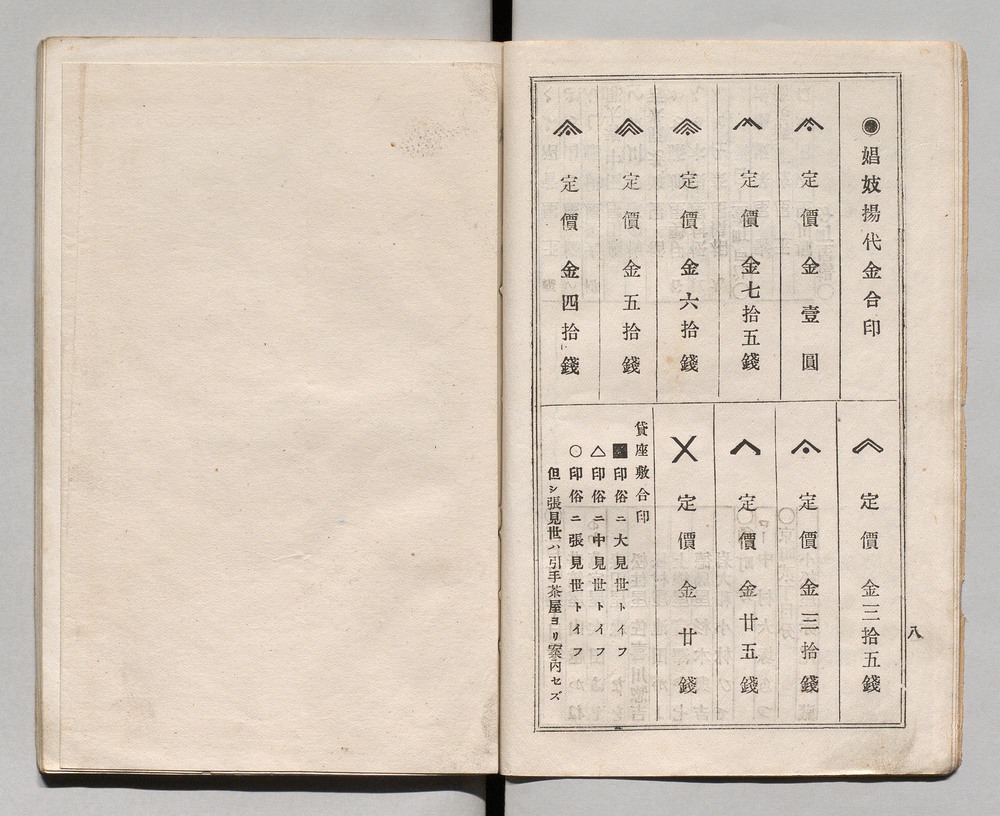 ◉娼妓揚代金合印
定價金壹圓
定價金七拾五錢
定價金六拾錢
定價金五拾錢
定價金四拾錢
定價金三拾五錢
定價金三拾錢
定價金廿五錢
定價金廿錢
貸座敷合印
■印俗ニ大見世トイフ
△印俗ニ中見世トイフ
○印俗ニ張見世トイフ
但シ張見世ハ引手茶屋ヨリ案內セズ
八